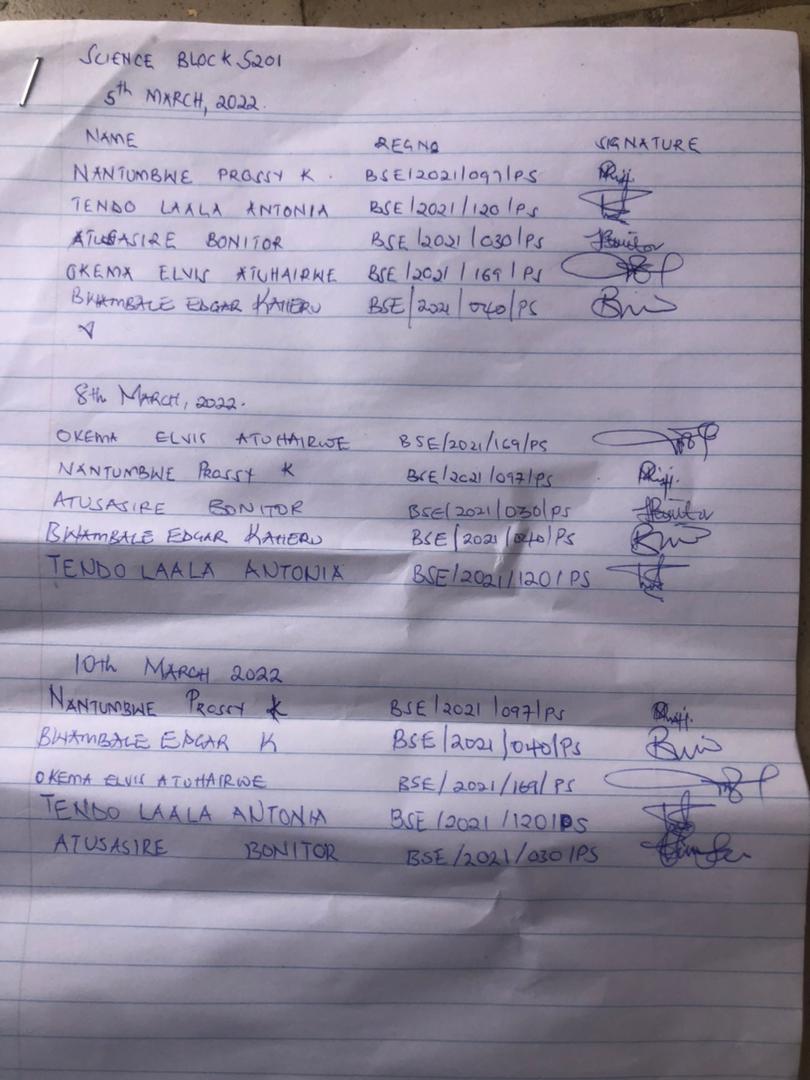 SCIENCE BLOCK S201
5th MARCH, 2022.
NAME REGNO SIGNATURE
NANTUMBWE PROSSY K. BSE/2021/097/PS
TENDO LAALA ANTONIA BSE/2021/120/PS
ATUSASIRE BONITOR BSE/2021/030/PS
OKEMA ELVIS ATUHAIRWE BSE/2021/169/PS
BWAMBALE EDGAR KAHERU BSE/2021/040/PS
8th MARCH, 2022.
OKEMA ELVIS ATUHAIRWE BSE/2021/169/PS
NANTUMBWE PROSSY K BSE/2021/097/PS
ATUSASIRE BONITOR BSE/2021/030/PS
BWAMBALE EDGAR KAHERU BSE/2021/040/PS
TENDO LAALA ANTONIA BSE/2021/120/PS
10th MARCH 2022
NANTUMBWE PROSSY K BSE/2021/097/PS
BWAMBALE EDGAR K BSE/2021/040/PS
OKEMA ELVIS ATUHAIRWE BSE/2021/169/PS
TENDO LAALA ANTONIA BSE/2021/120/PS
ATUSASIRE BONITOR BSE/2021/030/PS